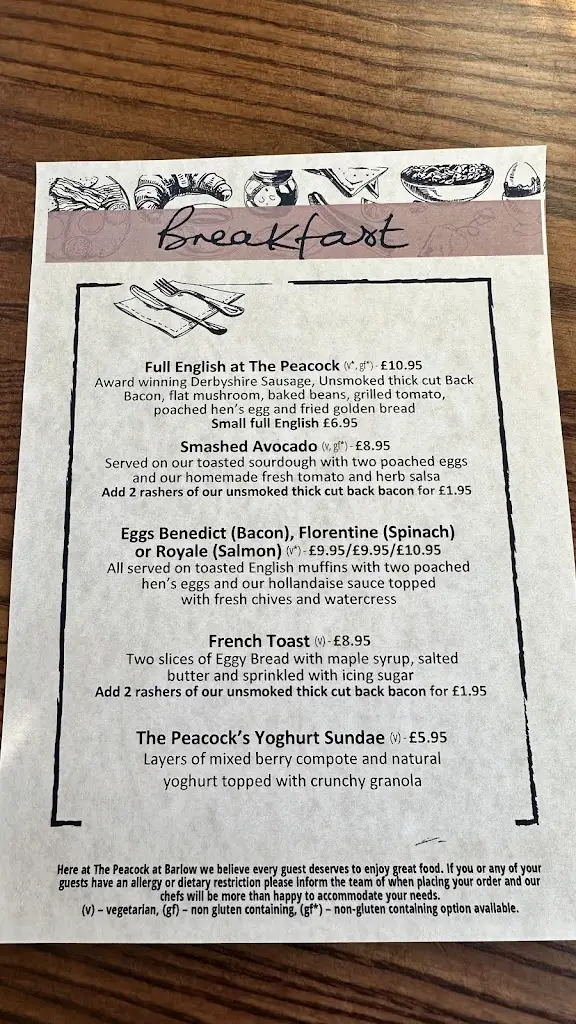 Breakfast
Full English at The Peacock (v*, gf*) - £10.95
Award winning Derbyshire Sausage, Unsmoked thick cut Back
Bacon, flat mushroom, baked beans, grilled tomato,
poached hen's egg and fried golden bread
Small full English £6.95
Smashed Avocado (v, gf*) - £8.95
Served on our toasted sourdough with two poached eggs
and our homemade fresh tomato and herb salsa
Add 2 rashers of our unsmoked thick cut back bacon for £1.95
Eggs Benedict (Bacon), Florentine (Spinach)
or Royale (Salmon) (v*) - £9.95/£9.95/£10.95
All served on toasted English muffins with two poached
hen's eggs and our hollandaise sauce topped
with fresh chives and watercress
French Toast (v) - £8.95
Two slices of Eggy Bread with maple syrup, salted
butter and sprinkled with icing sugar
Add 2 rashers of our unsmoked thick cut back bacon for £1.95
The Peacock's Yoghurt Sundae (v) - £5.95
Layers of mixed berry compote and natural
yoghurt topped with crunchy granola
Here at The Peacock at Barlow we believe every guest deserves to enjoy great food. If you or any of your
guests have an allergy or dietary restriction please inform the team of when placing your order and our
chefs will be more than happy to accommodate your needs.
(v) – vegetarian, (gf) – non gluten containing, (gf*) – non-gluten containing option available.